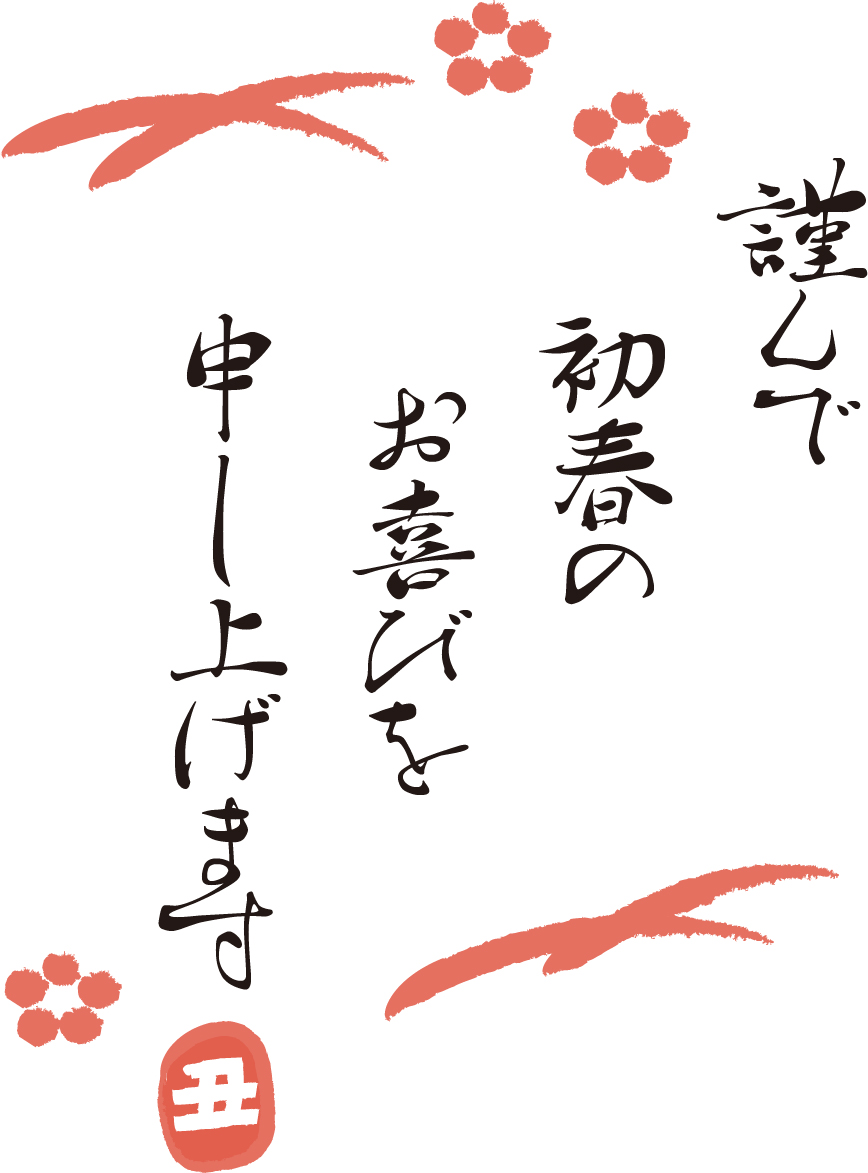 謹んで
初春の
お喜びを
申し上げます
丑